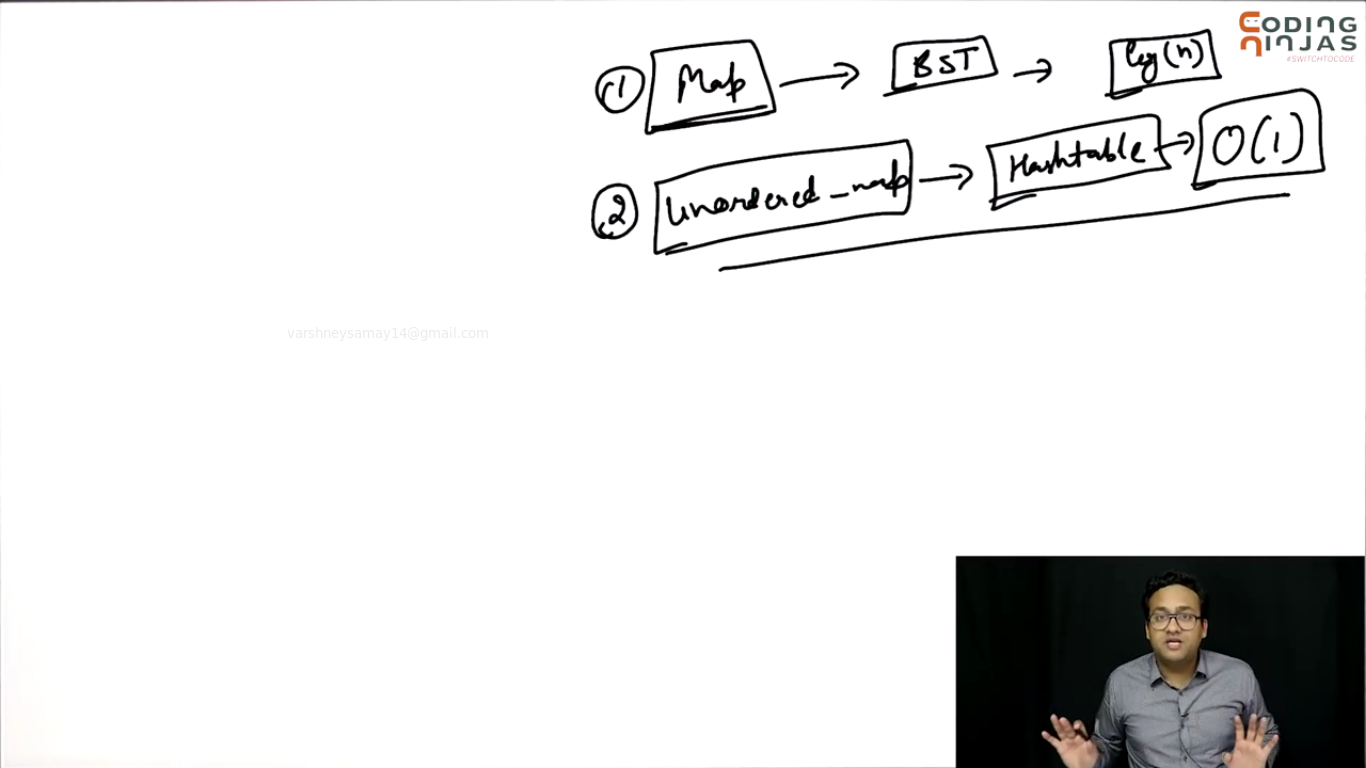 CODING
NINJAS
#SWITCHTOCODE
1 Map → BST → log(n)
2 Unordered_map → Hashtable → O(1)
varshneysamay14@gmail.com